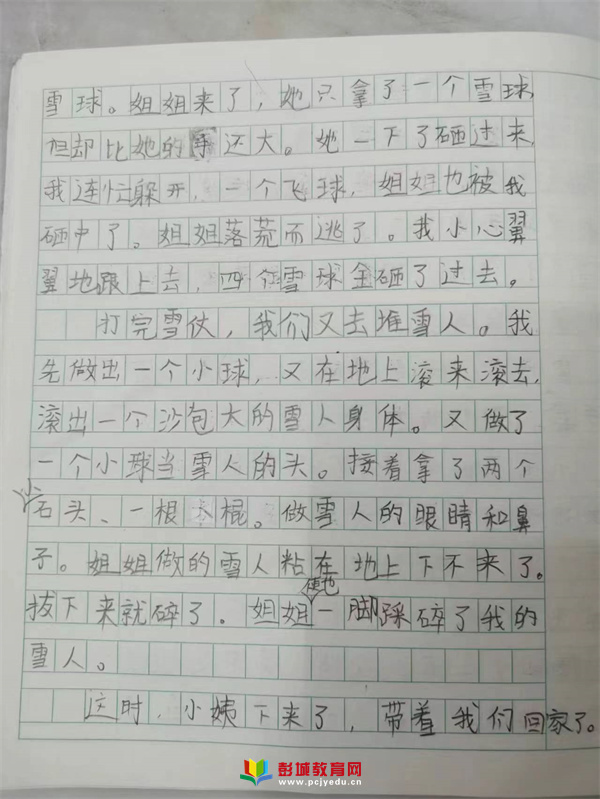 雪球。姐姐来了，她只拿了一个雪球，
但却比她的手还大。她一下了砸过来，
我连忙躲开，一个飞球，姐姐也被我
砸中了。姐姐落荒而逃了。我小心翼
翼地跟上去，四个雪球全砸了过去。
打完雪仗，我们又去堆雪人。我
先做出一个小球，又在地上滚来滚去，
滚出一个沙包大的雪人身体。又做了
一个小球当雪人的头。接着拿了两个
小石头、一根木棍。做雪人的眼睛和鼻
子。姐姐做的雪人粘在地上下不来了。
拔下来就碎了。姐姐便也一脚踩碎了我的
雪人。
这时，小姨下来了，带着我们回家了。
彭城教育网
www.pcjyedu.cn